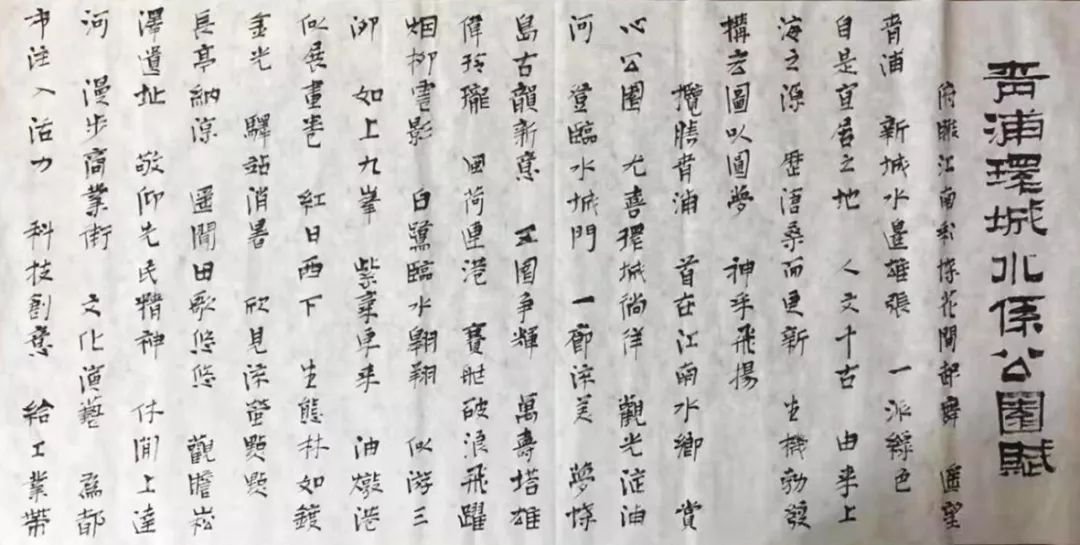 青浦環城水係公園賦
俯瞰江南 彩蝶花間起舞 遙望
青浦 新城水邊雄張 一派綠色
自是宜居之地 人文千古 由來上
海之源 歷滄桑而更新 生機勃發
構宏圖以圖夢 神乎飛揚
攬勝青浦 首在江南水鄉 賞
心公園 尤喜環城徜徉 觀光淀油
河 登臨水城門 一廊淳美 夢蝶
島古韻新意 五園爭輝 萬壽塔雄
偉玲瓏 風荷連港 賽艇破浪飛躍
烟柳雲影 白鷺臨水翱翔 似游三
泖 如上九峯 紫東來 油墩港
似展畫卷 紅日西下 生態林如鍍
金光 驛站消暑 欣見流螢點點
長亭納涼 遙聞田歌悠悠 觀瞻崧
澤遺址 敬仰先民精神 休閒上達
河 漫步商業街 文化演藝 爲都
市注入活力 科技創意 給工業帶